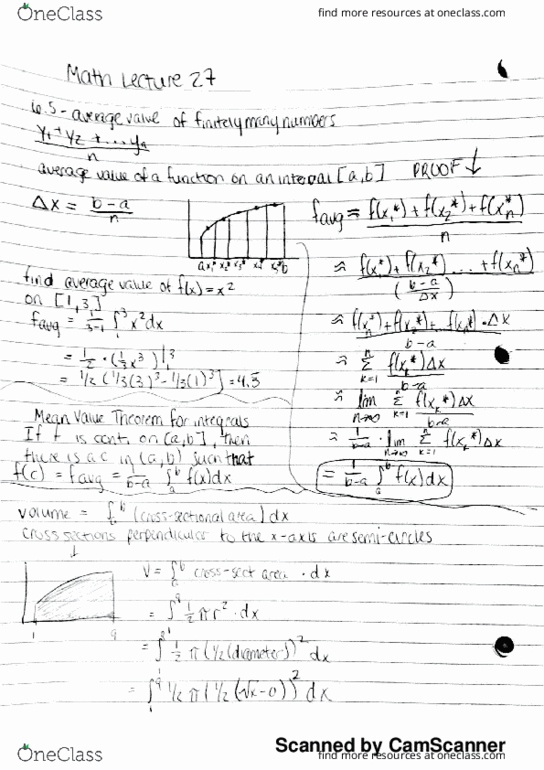 OneClass
find more resources at oneclass.com
Math Lecture 27
6.5 - average value of finitely many numbers
y₁ + y₂ + ... yₙ
n
average value of a function on an interval [a,b]
PROOF ↓
Δx = b-a
n
a x₁* x₂* x₃* x₄* xₙ* b
favg ≈ f(x₁*) + f(x₂*) + f(xₙ*)
n
≈ f(x₁*) + f(x₂*) ... + f(xₙ*)
(b-a
Δx)
≈ f(x₁*) + f(x₂*) + ... f(xₙ*) · Δx
b-a
≈ Σ f(xₖ*)Δx
n
k=1
b-a
≈ lim Σ f(xₖ*)Δx
n→∞ k=1
b-a
≈ 1/b-a · lim Σ f(xₖ*)Δx
n→∞ k=1
= 1/b-a ∫ₐᵇ f(x)dx
find average value of f(x) = x²
on [1,3]
favg = 1/3-1 ∫₁³ x²dx
= 1/2 · (1/3x³)|₁³
= 1/2 (1/3(3)³ - 1/3(1)³] = 4.3
Mean Value Theorem for integrals
If f is cont. on [a,b], then
there is a c in (a,b) such that
f(c) = favg = 1/b-a ∫ₐᵇ f(x)dx
volume = ∫ₐᵇ (cross-sectional area) dx
cross sections perpendicular to the x-axis are semi-circles
↓
1 9
V = ∫ₐᵇ cross-sect area · dx
= ∫₁⁹ 1/2 πr² · dx
= ∫₁⁹ 1/2 π(1/2(diameter))² dx
= ∫₁⁹ 1/2 π(1/2(√x-0))² dx
Scanned by CamScanner
OneClass
find more resources at oneclass.com